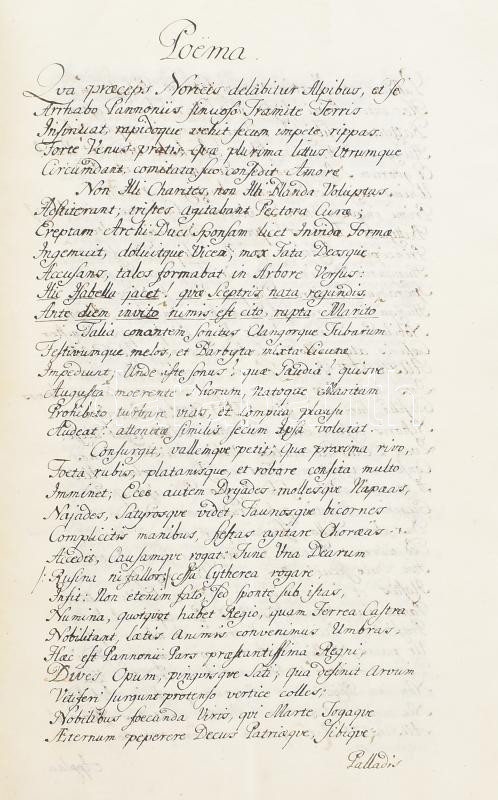 Poëma.
Qva præceps Noricis delabitur Alpibus, et se
Arrhabo Pannoniis sinuoso Tramite Terris
Insinuat, rapidoque vehit secum impete rippas.
Forte Venus pratis, quæ plurima littus utrumque
Circumdant, comitata suo consedit Amore.
Non Illi Charites, non Illi Blanda Voluptas
Adstiterant; tristes agitabant Pectora Curæ;
Ereptam Archi-Duci Sponsam licet Invida Formæ
Ingemuit, doluitque Vicem; mox Fata, Deosque
Accusans, tales formabat in Arbore Versus:
Hic Ysabella jacet! quæ Sceptris nata regundis.
Ante diem invito nimis est cito rupta Marito.
Talia conantem sonitus Clangorque Tubarum
Festivumque melos, et Barbyta mixta Cicutæ
Impediunt, Unde iste sonus! quæ Gaudia! quisve
Augusta moerente Nurum, Natoque Maritam
Prohibito turbare vias, et Compita plausu
Audeat! attonitæ similis secum Ipsa volutat.
Consurgit; vallemque petit; Quæ proxima rivo,
Foeta rubis, platanisque, et robore consita multo
Imminet; Ecce autem Dryades mollesque Napæas,
Najades, Satyrosque videt, Faunosque bicornes
Complicitis manibus, festas agitare Choræas.
Accedit, Causamque rogat. Tunc Una Dearum
/: Rusina ni fallor :/ essa Cytherea rogare,
Insit: Non etenim fato, sed sponte sub istas,
Numina, quotquot habet Regio, quam Ferrea Castra
Nobilitant, lætis Animis convenimus Umbras.
Hæc est Pannonii Pars præstantissima Regni,
Dives Opum, pinguisque Sati; qua desinit Arvum
Vitiferi surgunt protenso vertice colles;
Nobilibus foecunda Viris, qui Marte, Togaque
Æternum peperere Decus Patriæque, sibique;
Palladis